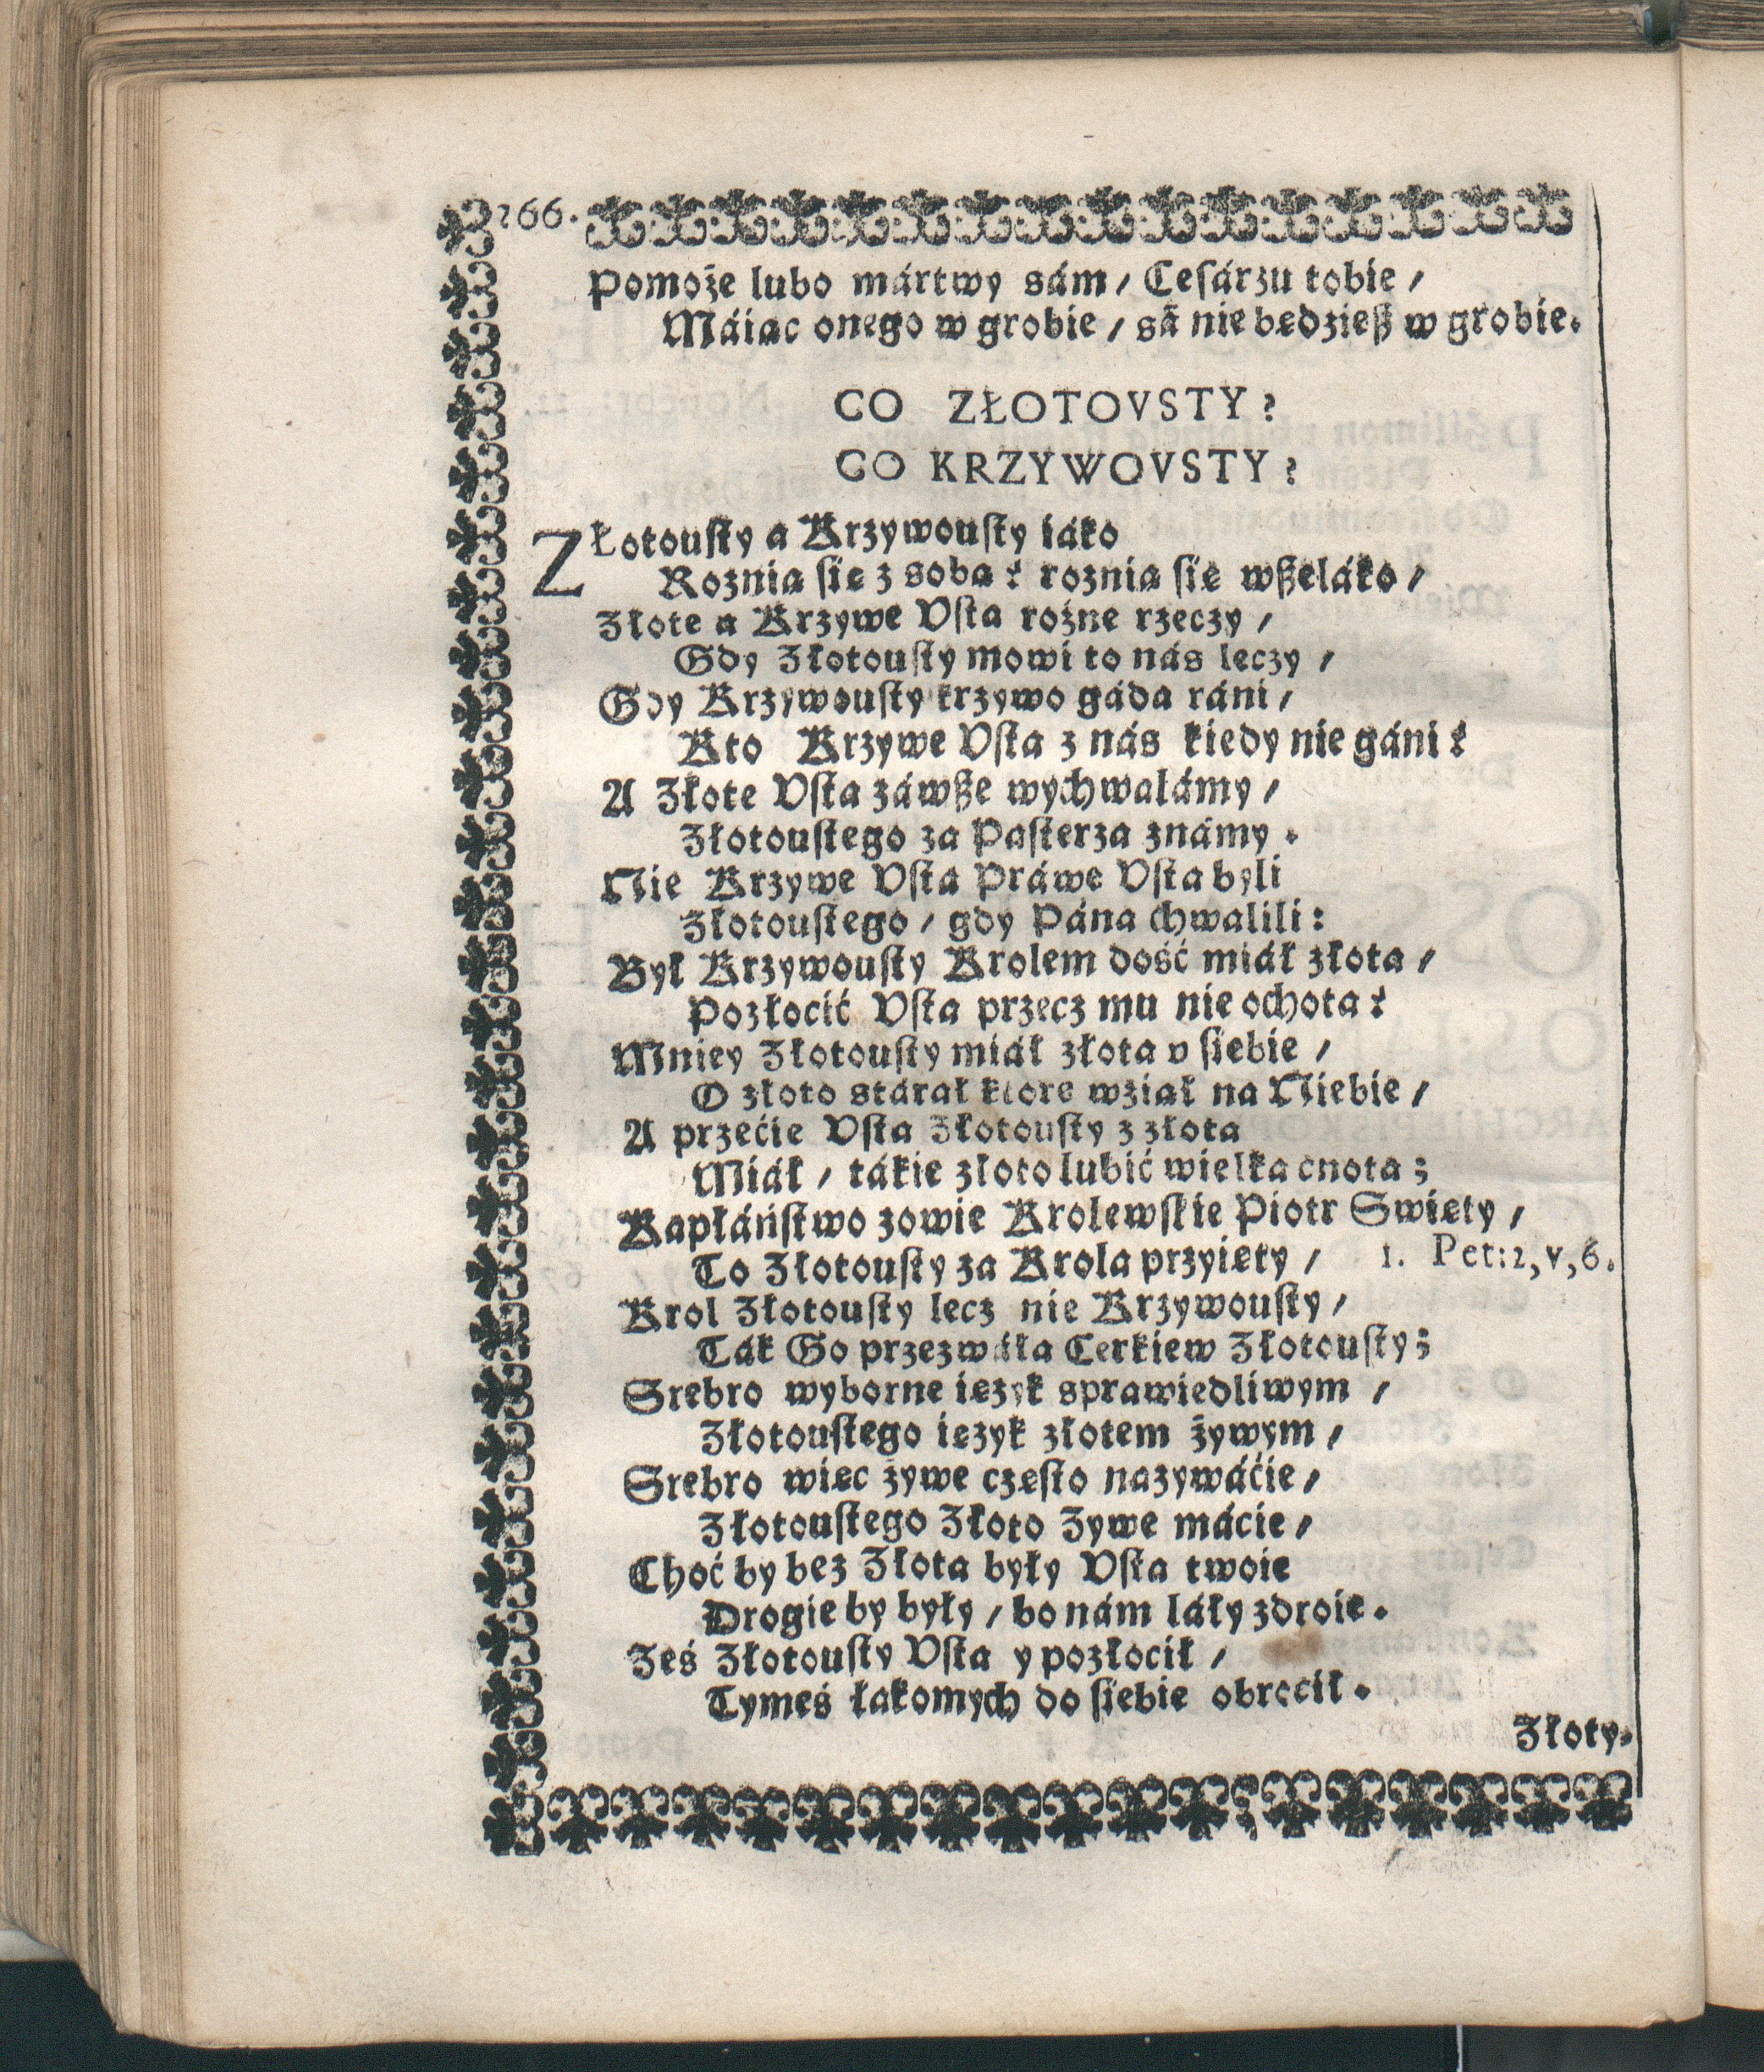 266.
Pomoże lubo mártwy sám / Cesárzu tobie /
Máiąc onego w grobie / sã nie będzieß w grobie.
CO ZŁOTOVSTY?
CO KRZYWOVSTY?
ZŁotousty a Krzywousty iáko
Roznią się z sobą? roznią się wßeláko /
Złote a Krzywe Vsta rożne rzeczy /
Gdy Złotousty mowi to nás leczy /
Gdy Krzywousty krzywo gáda ráni /
Kto Krzywe Vsta z nás kiedy nie gáni?
A Złote Vsta záwße wychwalámy /
Złotoustego za Pasterza známy.
Nie Krzywe Vsta Práwe Vsta byli
Złotoustego / gdy Pána chwalili:
Był Krzywousty Krolem dość miáł złota /
Pozłocić Vsta przecz mu nie ochota?
Mniey Złotousty miáł złota v siebie /
O złoto stárał ktore wźiął na Niebie /
A przećie Vsta Złotousty z złota
Miáł / tákie złoto lubić wielka cnota;
Kapłáństwo zowie Krolewskie Piotr Swięty /
To Złotousty za Krola przyięty / 1. Pet:2,v,6.
Krol Złotousty lecz nie Krzywousty /
Ták Go przezwáła Cerkiew Złotousty;
Srebro wyborne ięzyk sprawiedliwym /
Złotoustego ięzyk złotem żywym /
Srebro więc żywe często nazywáćie /
Złotoustego Złoto Zywe mácie /
Choć by bez Złota były Vsta twoie
Drogie by były / bo nám láły zdroie.
Ześ Złotousty Vsta y pozłocił /
Tymeś łakomych do siebie obrocił.
Złoty.